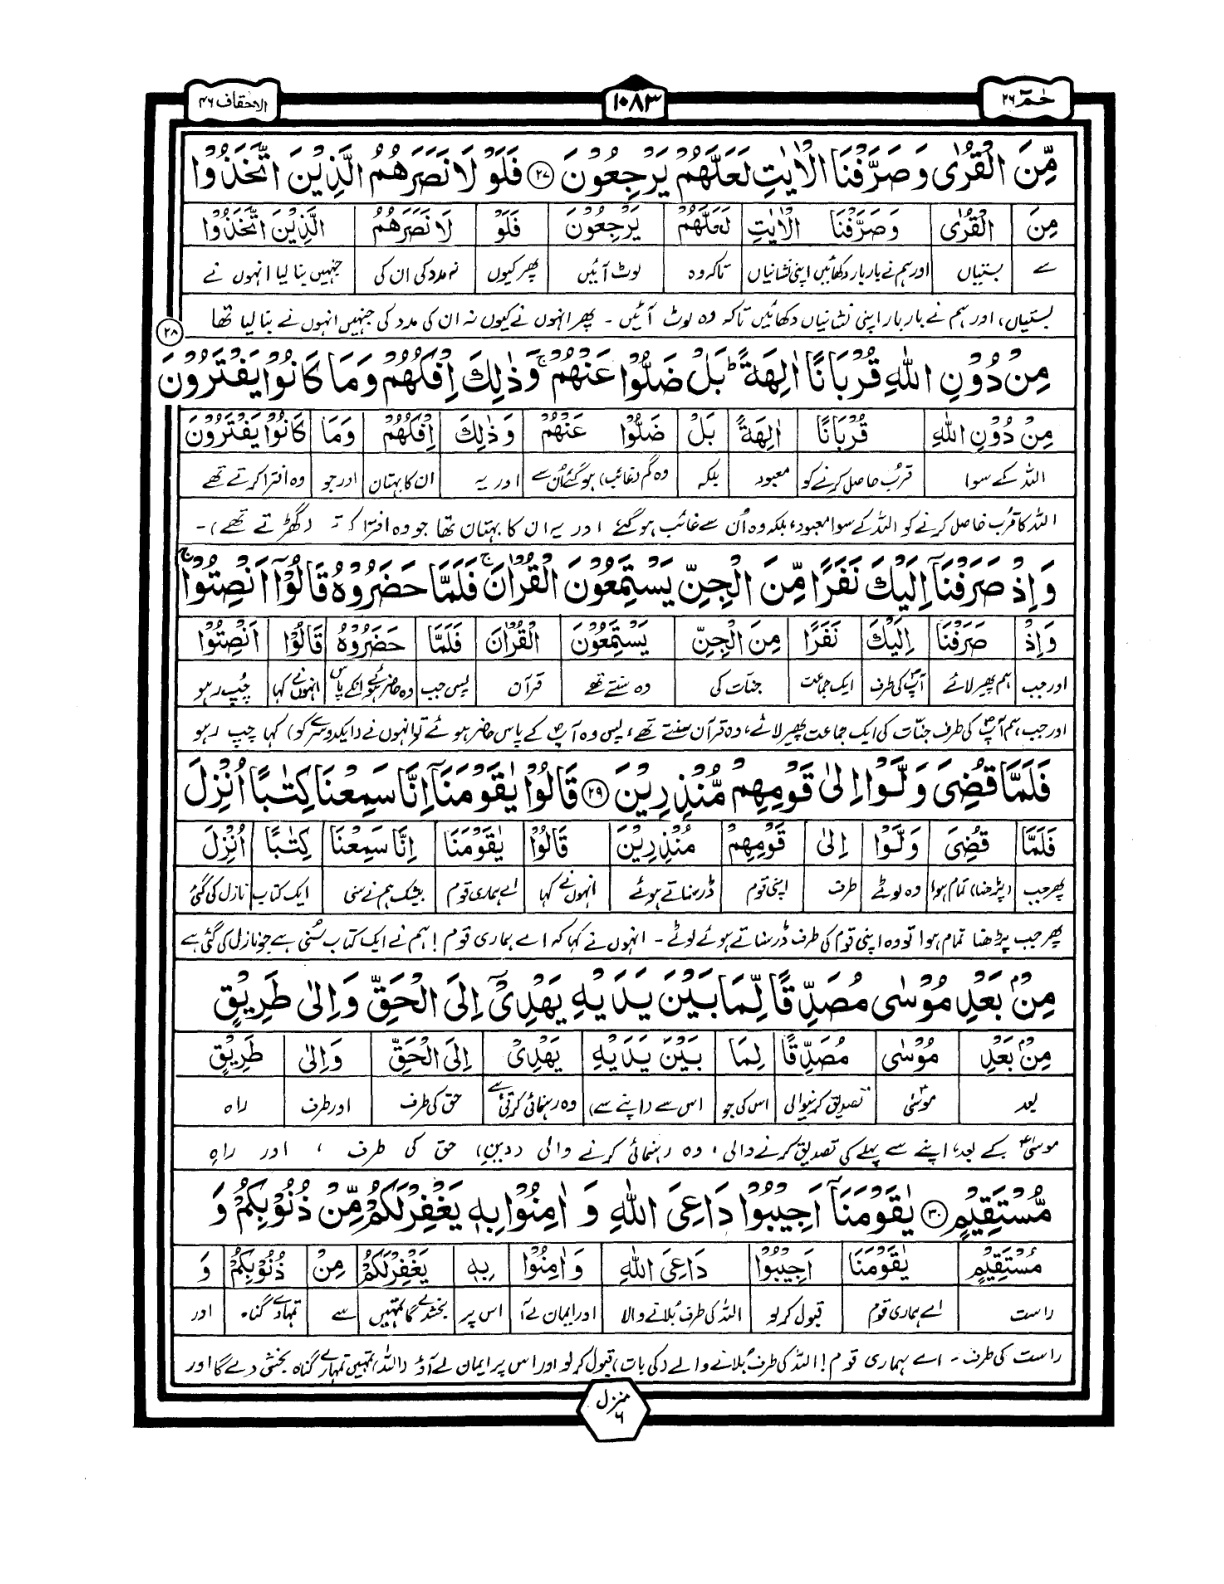 حٰمٓ ۲۶
۱۰۸۳
الاحقاف ۴۶
مِّنَ الْقُرٰى وَصَرَّفْنَا الْاٰيٰتِ لَعَلَّهُمْ يَرْجِعُوْنَ ۲۷ فَلَوْ لَا نَصَرَهُمُ الَّذِيْنَ اتَّخَذُوْا
مِنَ الْقُرٰى وَصَرَّفْنَا الْاٰيٰتِ لَعَلَّهُمْ يَرْجِعُوْنَ فَلَوْ لَا نَصَرَهُمُ الَّذِيْنَ اتَّخَذُوْا
سے بستیاں اور ہم نے بار بار دکھائیں اپنی نشانیاں تاکہ وہ لوٹ آئیں پھر کیوں نہ مدد کی ان کی جنہیں بنا لیا انہوں نے
بستیاں، اور ہم نے بار بار اپنی نشانیاں دکھائیں تاکہ وہ لوٹ آئیں ۔ پھر انہوں نے کیوں نہ ان کی مدد کی جنہیں انہوں نے بنا لیا تھا
مِنْ دُوْنِ اللّٰهِ قُرْبَانًا اٰلِهَةً ؕ بَلْ ضَلُّوْا عَنْهُمْ ۚ وَذٰلِكَ اِفْكُهُمْ وَمَا كَانُوْا يَفْتَرُوْنَ ۲۸
مِنْ دُوْنِ اللّٰهِ قُرْبَانًا اٰلِهَةً بَلْ ضَلُّوْا عَنْهُمْ وَذٰلِكَ اِفْكُهُمْ وَمَا كَانُوْا يَفْتَرُوْنَ
اللہ کے سوا قرب حاصل کرنے کو معبود بلکہ وہ گم (غائب) ہو گئے اُن سے اور یہ ان کا بہتان اور جو وہ افترا کرتے تھے
اللہ کا قرب حاصل کرنے کو اللہ کے سوا معبود، بلکہ وہ اُن سے غائب ہو گئے اور یہ ان کا بہتان تھا جو وہ افترا کرتے (گھڑتے تھے) ۔
وَاِذْ صَرَفْنَآ اِلَيْكَ نَفَرًا مِّنَ الْجِنِّ يَسْتَمِعُوْنَ الْقُرْاٰنَ ۚ فَلَمَّا حَضَرُوْهُ قَالُوْٓا اَنْصِتُوْا ۚ
وَاِذْ صَرَفْنَآ اِلَيْكَ نَفَرًا مِّنَ الْجِنِّ يَسْتَمِعُوْنَ الْقُرْاٰنَ فَلَمَّا حَضَرُوْهُ قَالُوْٓا اَنْصِتُوْا
اور جب ہم پھیر لائے آپؐ کی طرف ایک جماعت جنات کی وہ سنتے تھے قرآن پس جب وہ حاضر ہوئے انکے پاس انہوں نے کہا چپ رہو
اور جب ہم آپؐ کی طرف جنات کی ایک جماعت پھیر لائے، وہ قرآن سنتے تھے، پس وہ آپؐ کے پاس حاضر ہوئے تو انہوں نے (ایک دوسرے کو) کہا چپ رہو
فَلَمَّا قُضِيَ وَلَّوْا اِلٰى قَوْمِهِمْ مُّنْذِرِيْنَ ۲۹ قَالُوْا يٰقَوْمَنَآ اِنَّا سَمِعْنَا كِتٰبًا اُنْزِلَ
فَلَمَّا قُضِيَ وَلَّوْا اِلٰى قَوْمِهِمْ مُنْذِرِيْنَ قَالُوْا يٰقَوْمَنَآ اِنَّا سَمِعْنَا كِتٰبًا اُنْزِلَ
پھر جب (پڑھنا) تمام ہوا وہ لوٹے طرف اپنی قوم ڈر سناتے ہوئے انہوں نے کہا اے ہماری قوم بیشک ہم نے سنی ایک کتاب نازل کی گئی
پھر جب پڑھنا تمام ہوا تو وہ اپنی قوم کی طرف ڈر سناتے ہوئے لوٹے ۔ انہوں نے کہا کہ اے ہماری قوم! ہم نے ایک کتاب سُنی ہے جو نازل کی گئی ہے
مِنْۢ بَعْدِ مُوْسٰى مُصَدِّقًا لِّمَا بَيْنَ يَدَيْهِ يَهْدِيْٓ اِلَى الْحَقِّ وَاِلٰى طَرِيْقٍ
مِنْۢ بَعْدِ مُوْسٰى مُصَدِّقًا لِمَا بَيْنَ يَدَيْهِ يَهْدِيْٓ اِلَى الْحَقِّ وَاِلٰى طَرِيْقٍ
بعد موسیٰؑ تصدیق کرنیوالی اس کی جو اس سے (اپنے سے) وہ رہنمائی کرتی ہے حق کی طرف اور طرف راہ
موسیٰؑ کے بعد، اپنے سے پہلے کی تصدیق کرنے والی، وہ رہنمائی کرنے والی (دین) حق کی طرف ، اور راہ
مُّسْتَقِيْمٍ ۳۰ يٰقَوْمَنَآ اَجِيْبُوْا دَاعِيَ اللّٰهِ وَ اٰمِنُوْا بِهٖ يَغْفِرْلَكُمْ مِّنْ ذُنُوْبِكُمْ وَ
مُسْتَقِيْمٍ يٰقَوْمَنَآ اَجِيْبُوْا دَاعِيَ اللّٰهِ وَاٰمِنُوْا بِهٖ يَغْفِرْلَكُمْ مِنْ ذُنُوْبِكُمْ وَ
راست اے ہماری قوم قبول کر لو اللہ کی طرف بُلانے والا اور ایمان لے آ اس پر بخشدے گا تمہیں سے تمہارے گناہ اور
راست کی طرف ۔ اے ہماری قوم! اللہ کی طرف بُلانے والے (کی بات) قبول کر لو اور اس پر ایمان لے آؤ (اللہ) تمہیں تمہارے گناہ بخش دے گا اور
منزل ۶